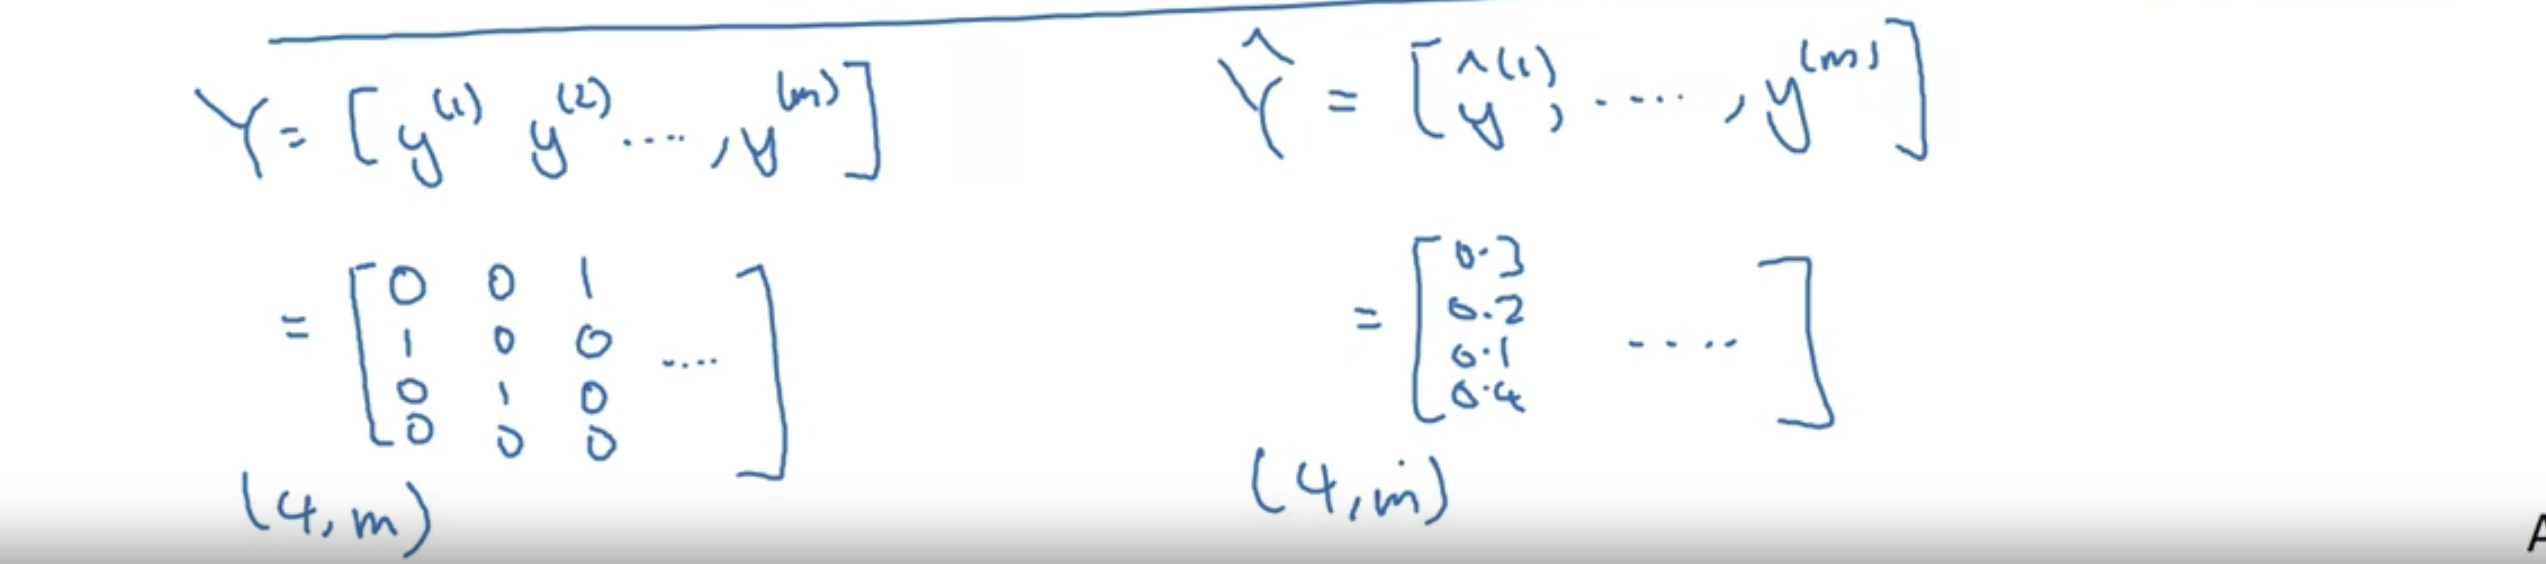 Y = [y^(1) y^(2) ...., y^(m)]
= [0 0 1
1 0 0 ....
0 1 0
0 0 0]
(4, m)
Ŷ = [ŷ^(1), ....., y^(m)]
= [0.3
0.2
0.1 .....
0.4]
(4, m)
A